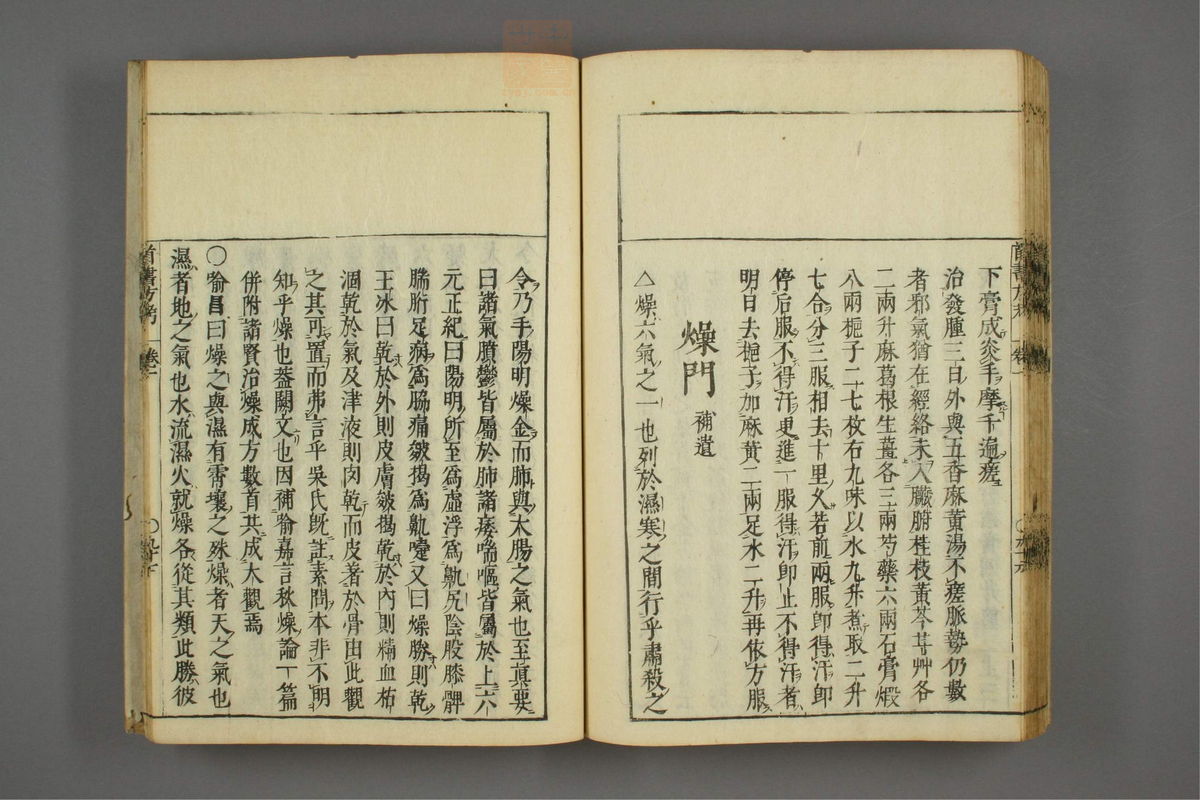 下膏成炎手摩千遍瘥
治發腫三日外與五香麻黃湯不瘥脈勢仍數
者邪氣猶在經絡未入臟腑桂枝黃芩甘艸各
二兩升麻葛根生薑各三兩芍藥六兩石膏煅
八兩梔子二七枚右九味以水九升煮取二升
七合分三服相去十里久若前兩服卽得汗卽
停后服不得汗更進一服得汗卽止不得汗者
明日去梔子加麻黃二兩足水二升再依方服
燥門 補遺
△燥六氣之一也列於濕寒之間行乎肅殺之
令乃手陽明燥金而肺與大腸之氣也至真要
曰諸氣膹鬱皆屬於肺諸痿喘嘔皆屬於上六
元正紀曰陽明所至爲虛浮爲鼽尻陰股膝髀
腨胻足病爲脇痛皴揭爲鼽嚏又曰燥勝則乾
王冰曰乾於外則皮膚皴揭乾於內則精血枯
涸乾於氣及津液則肉乾而皮著於骨由此觀
之其可置而弗言乎吳氏旣註素問本非不明
知乎燥也葢闕文也因補喻嘉言秋燥論一篇
併附諸賢治燥成方數首共成大觀焉
〇喻昌曰燥之與濕有霄壤之殊燥者天之氣也
濕者地之氣也水流濕火就燥各從其類此勝彼
首書方考 卷一